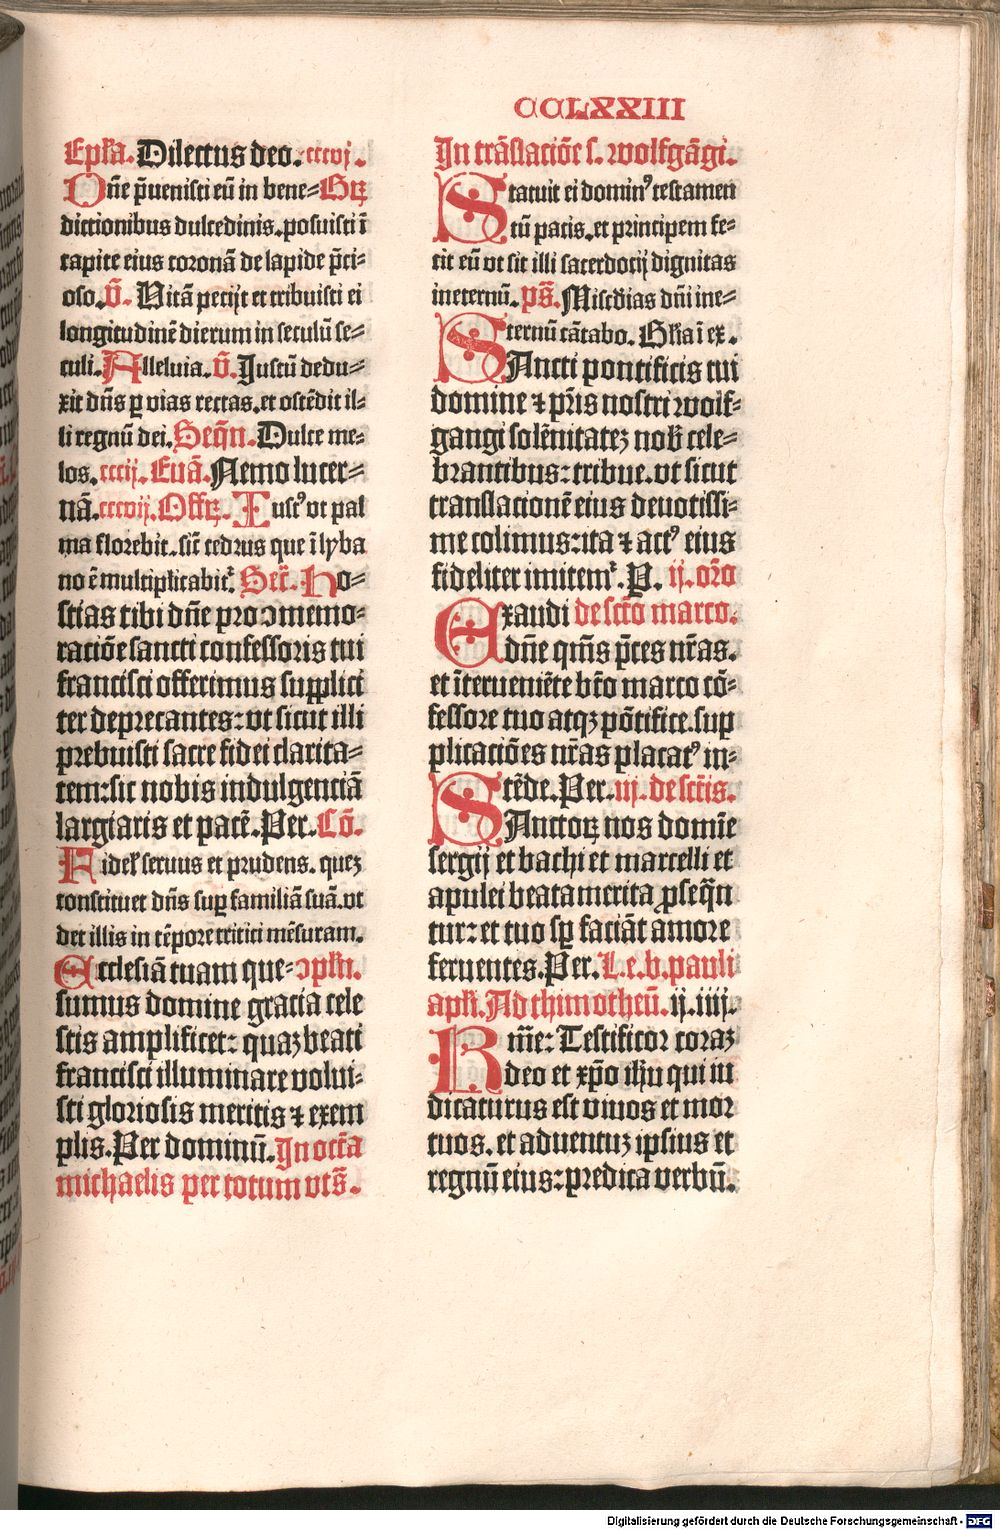 CCLXXIII
Epl̃a. Dilectus deo. cccvj.
Dñe p̃uenisti eũ in bene= Gꝝ
dictionibus dulcedinis. posuisti ĩ
capite eius coronã de lapide p̃ci=
oso. ṽ. Vitã pecijt et tribuisti ei
longitudinẽ dierum in seculũ se=
culi. Alleluia. ṽ. Justũ dedu=
xit dñs ꝑ vias rectas. et ostẽdit il=
li regnũ dei. Seqñ. Dulce me=
los. cccij. Euã. Nemo lucer=
nã. cccvij. Offꝝ. Iustꝰ vt pal
ma florebit. sič cedrus que ĩ lyba
no ẽ multiplicabit᷑. Secr̃. Ho=
stias tibi dñe pro ɔmemo=
raciõe sancti confessoris tui
francisci offerimus supplici
ter deprecantes: vt sicut illi
prebuisti sacre fidei clarita=
tem: sic nobis indulgenciã
largiaris et pacẽ. Per. Cõ.
Fidel̃ seruus et prudens. queꝫ
constituet dñs suꝑ familiã suã. vt
det illis in tẽpore tritici mẽsuram.
Ecclesiã tuam que= ɔpl̃n.
sumus domine gracia cele
stis amplificet: quaꝫ beati
francisci illuminare volui=
sti gloriosis meritis ⁊ exem
plis. Per dominũ. In octã
michaelis per totum vts̃.
In trãslaciõe s. wolfgãgi.
Statuit ei dominꝰ testamen
tũ pacis. et principem fe=
cit eũ vt sit illi sacerdocij dignitas
in eternũ. ps̃. Misc̃dias dñi in e=
ternũ cãtabo. Gl̃ia ĩ ex.
Sancti pontificis tui
domine ⁊ pr̃is nostri wolf=
gangi solẽnitateꝫ nob̃ cele=
brantibus: tribue. vt sicut
translacionẽ eius deuotissi=
me colimus: ita ⁊ actꝰ eius
fideliter imitem᷑. P. ij. or̃o
Exaudi de sc̃to marco.
dñe qm̃s p̃ces nr̃as.
et ĩterueniẽte bt̃o marco cõ=
fessore tuo atqꝫ põtifice. sup
plicaciões nr̃as placatꝰ in=
tẽde. Per. iij. de sc̃tis.
Sanctoꝝ nos domĩe
sergij et bachi et marcelli et
apulei beata merita ꝓseqñ
tur: et tuo sꝑ faciãt amore
feruentes. Per. L. e. b. pauli
apl̃i. Ad thimotheũ. ij. iiij.
Km̃e: Testificor coraꝫ
deo et xp̃o ih̃u qui iu
dicaturus est viuos et mor
tuos. et aduentuꝫ ipsius et
regnũ eius: predica verbũ.
Digitalisierung gefördert durch die Deutsche Forschungsgemeinschaft - DFG